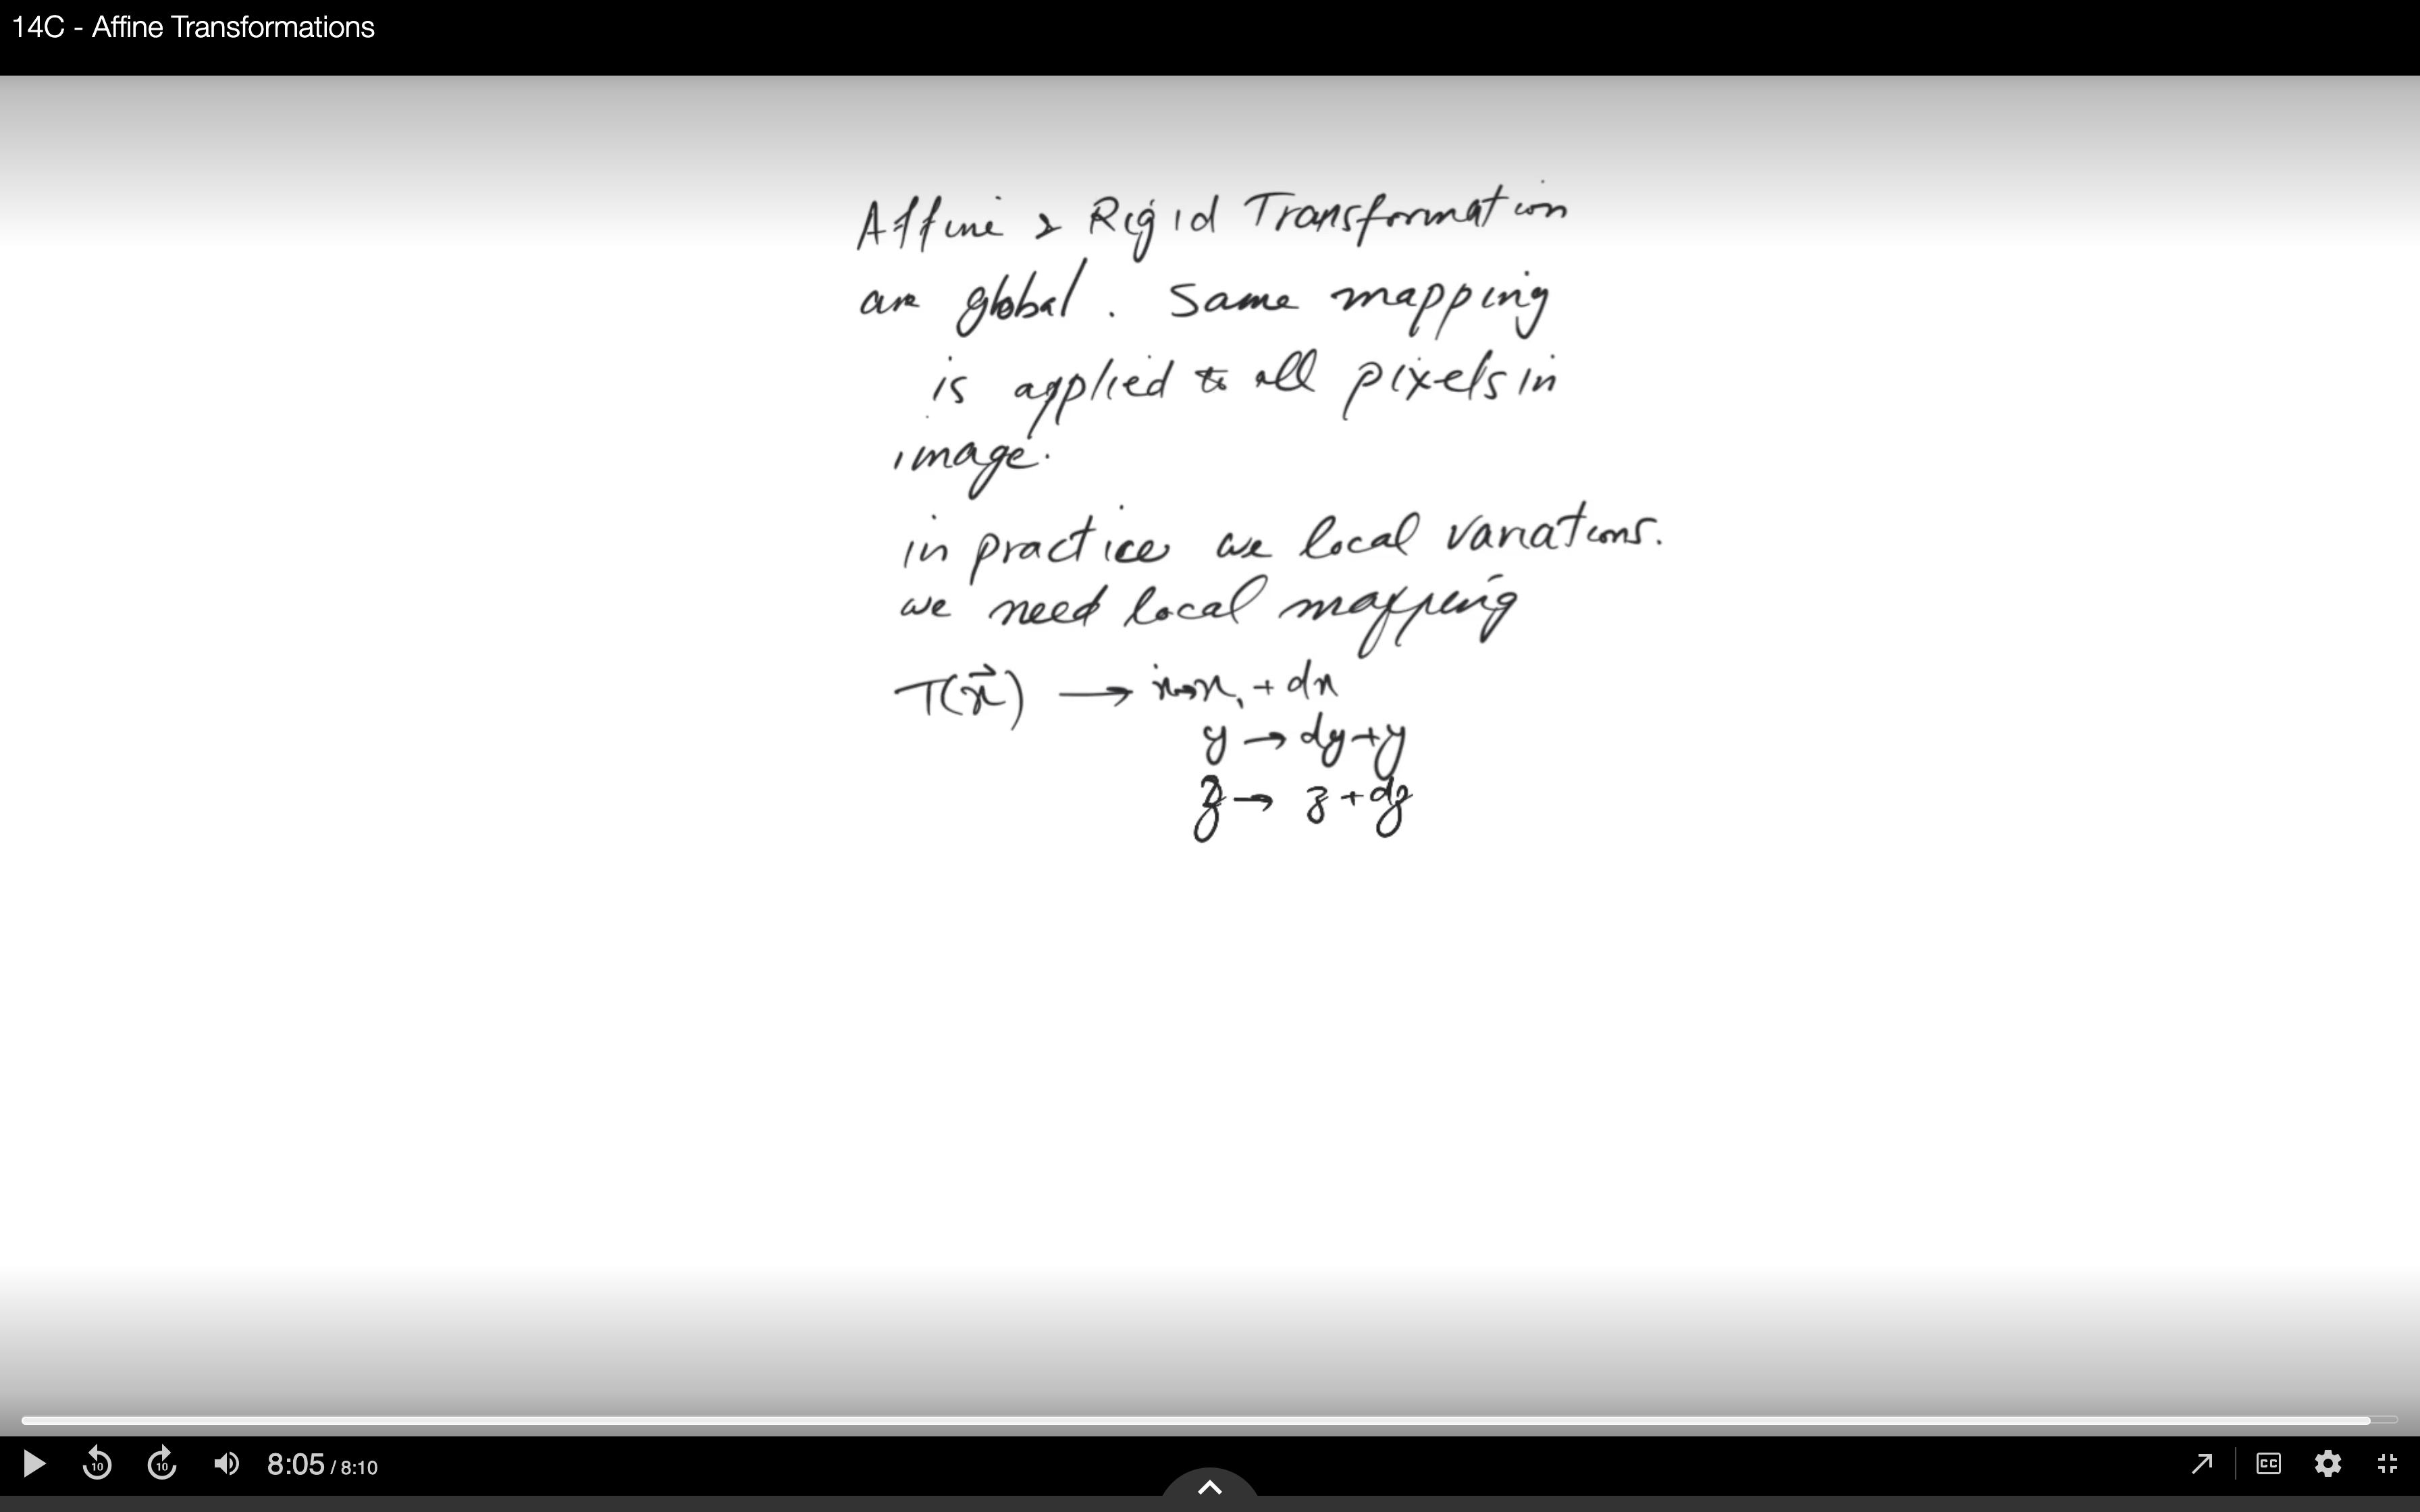 14C - Affine Transformations
Affine & Rigid Transformation
are global. Same mapping
is applied to all pixels in
image.
in practice we local variations.
we need local mapping
T(x⃗) → x→x, + dx
y → dy+y
z → z+dz
10 10 8:05 / 8:10 CC